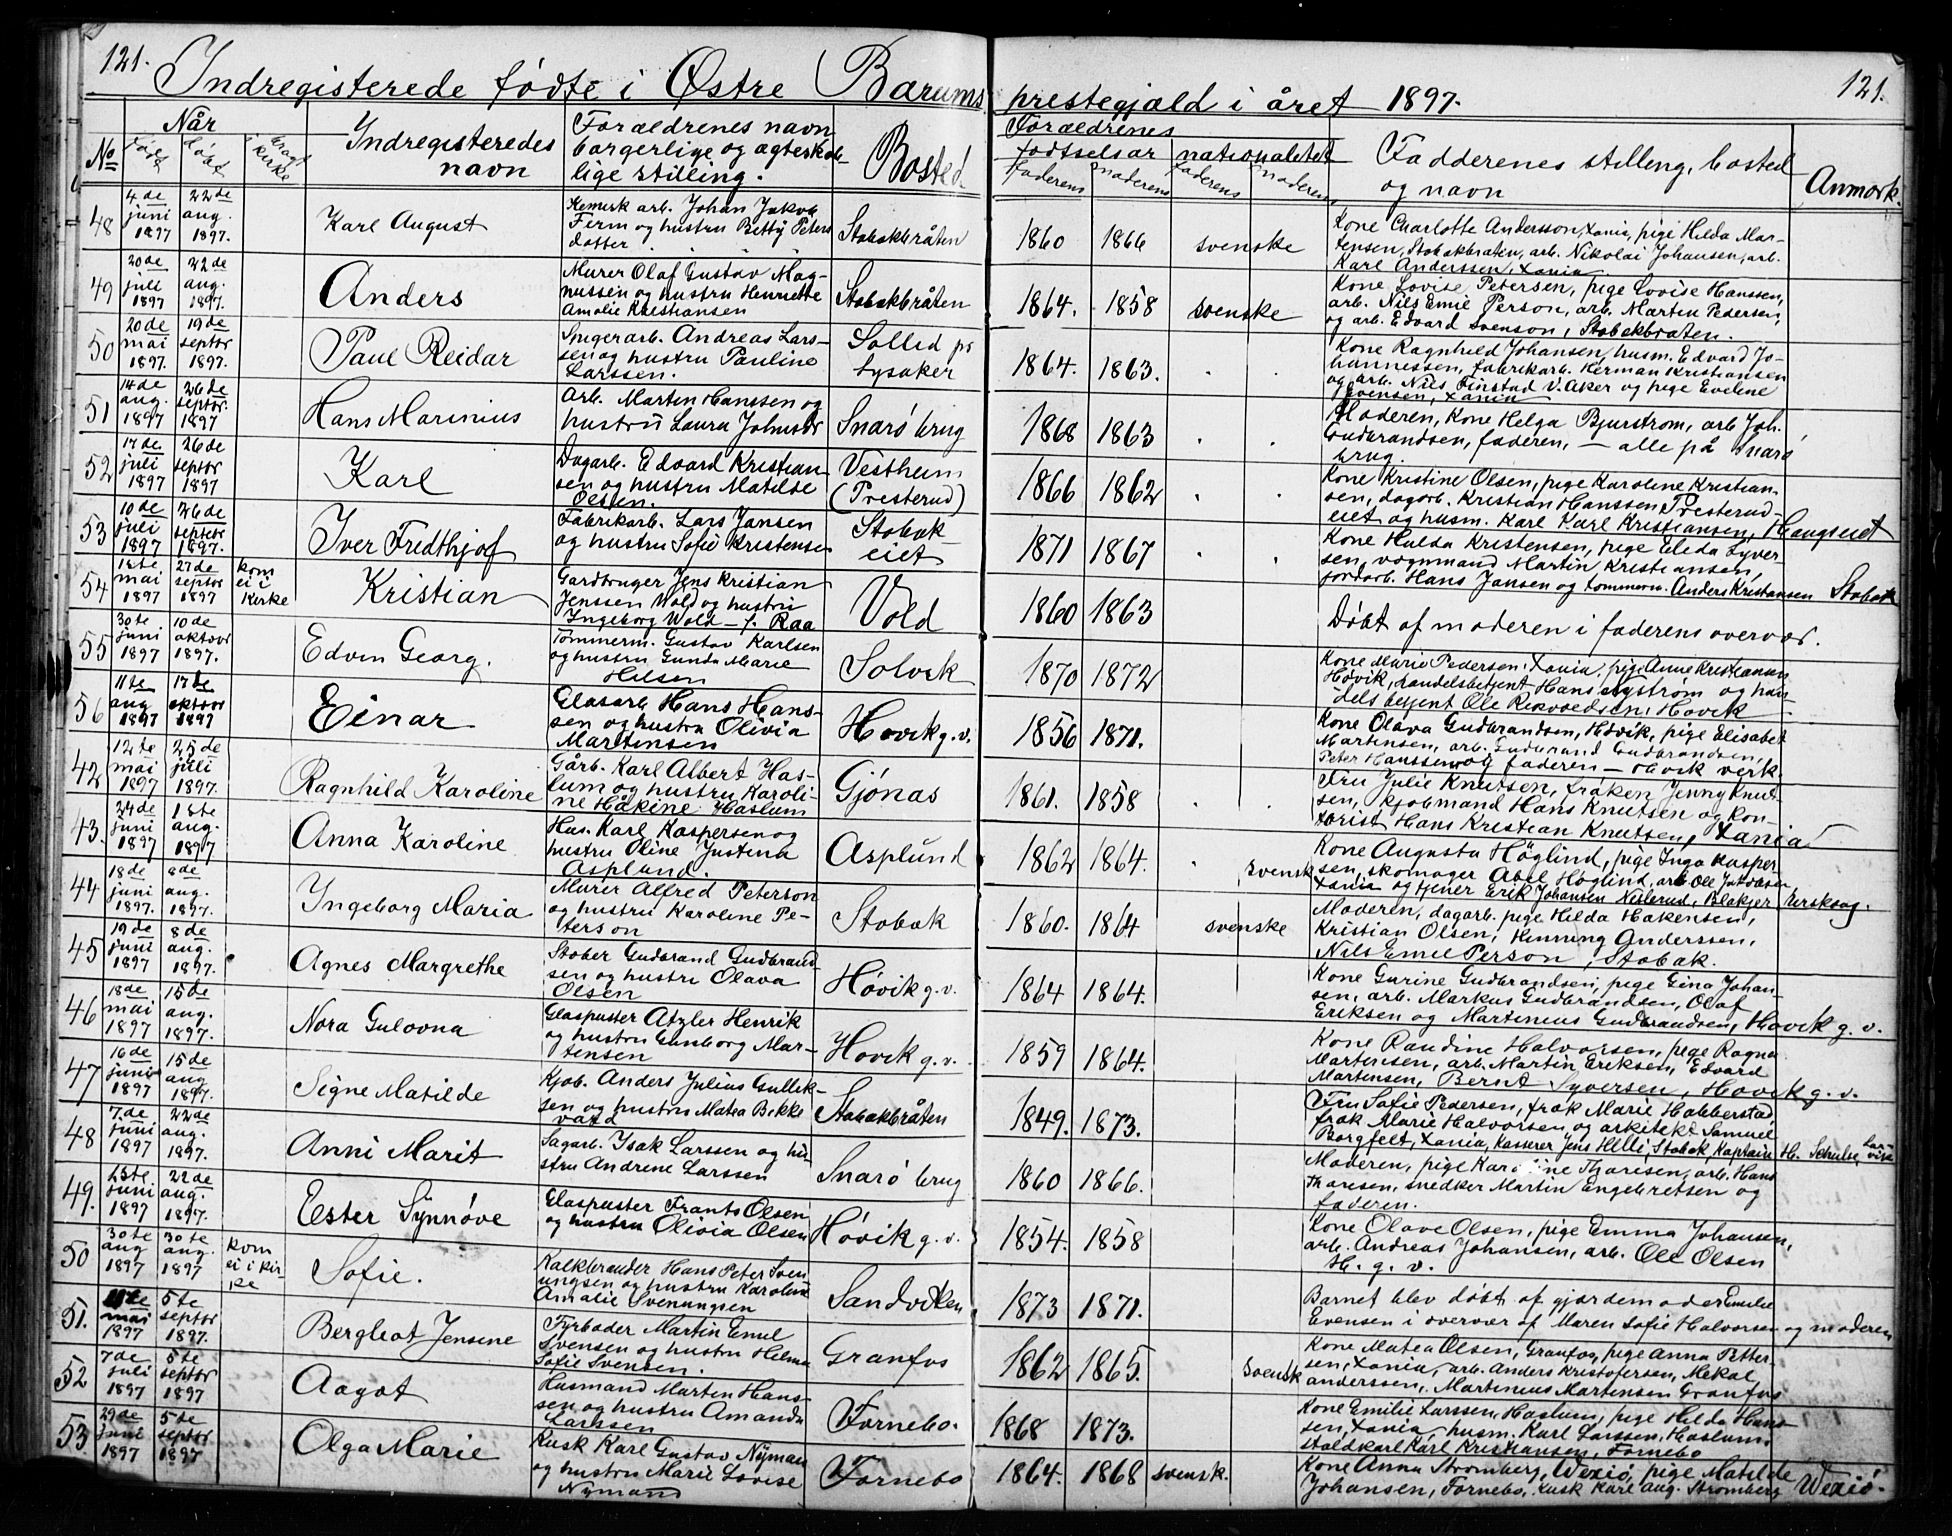 121. Indregisterede fødte i Østre Bærums prestegjæld i året 1897. 121.
No Når født døbt bragt i kirke Indregisteredes navn Forældrenes navn borgerlige og ægteskabelige stilling. Bosted. Forældrenes fødtselsår faderens moderens nationalitet faderens moderens Fadderenes stilling, bosted og navn Anmærk.
48 4de juni 1897 22de aug. 1897. Karl August Kemisk arb. Johan Jakob Ferm og hustru Betty Petersdotter Stabækbråten 1860 1866 svenske Kone Charlotte Andersson, Xania, pige Hilda Martensen, Stabækbråten, arb. Nikolai Johansen, arb. Karl Anderssen, Xania
49 20de juli 1897 22de aug. 1897. Anders Murer Olaf Gustav Magnussen og hustru Henriette Amalie Kristiansen Stabækbråten 1864. 1858 svenske Kone Lovise Petersen, pige Lovise Hanssen, arb. Nils Emil Person, arb. Martin Pedersen, og arb. Edvard Svenson, Stabækbråten.
50 20de mai 1897. 19de septbr 1897. Paul Reidar Andreas Larssen og hustru Pauline Larssen. Sollid pr Lysaker 1864. 1863. . . Kone Ragnhild Johansen, husm. Edvard Johannessen, fabrikarb. Herman Kristiansen og arb. Nils Finstad V. Aker og pige Eveline Evensen, Xania
51 14de aug. 1897 26de septbr. 1897 Hans Marinius Arb. Martin Hanssen og hustru Laura Johnsdr Snarø brug 1868 1863 . . Moderen, Kone Helga Bjurstrøm, arb Joh. Gudbrandsen, faderen, — alle på Snarø brug.
52 17de juli 1897 26de septbr 1897 Karl Dagarb. Edvard Kristiansen og hustru Matilde Olsen. Vestheim (Presterud) 1866 1862 . . Kone Kristine Olsen, pige Karoline Kristiansen, dagarb. Kristian Hanssen Presterudeiet og husm. Karl Karl Kristiansen, Haugseiet
53 10de juli 1897 26de septbr 1897. Iver Fredthjof Fabrikarb. Lars Jansen og hustru Sofie Kristensen Stabækeiet 1871 1867 . . Kone Hulda Kristensen, pige Elida Syversen, vognmand Martin Kristiansen, jordarb. Hans Jansen og tømmerm. Anders Kristiansen Stabæk
54 mai 1897 27de septbr 1897 kom ei i kirke Kristian Gardbruger Jens Kristian Jenssen Wold og hustru Ingeborg Wold — f. Raa Vold 1860 1863 Døbt af moderen i faderens overvær.
55 30te juni 1897 10de oktobr 1897. Edvin Georg. Tømmerm. Gustav Karlsen og hustru Gunda Marie Nilsen Solvik 1870 1872 Kone Marie Pedersen, Xania, pige Anne Kristiansen Høvik, handelsbetjent Hans Nystrøm og handelsbetjent Ole Høvik
56 11te aug 1897 17de oktobr 1897 Einar Glasarb Hans Hanssen og hustru Olivia Martensen Høvik g.v. 1856 1871. Kone Olava Gudbrandsen, Høvik, pige Elisabet Martinsen, arb. Gudbrand Gudbrandsen, Peter Hanssen og faderen — Høvik verk.
42 12te mai 1897 25de juli 1897. Ragnhild Karoline Gårb. Karl Albert Haslum og hustru Karoline Håkine Haslum Gjønas 1861. 1858 . . Fru Julie Knutsen, frøken Jenny Knutsen, kjøbmand Hans Knutsen og kontorist Hans Kristian Knutsen, Xania
43. 24de juni 1897 1ste aug. 1897 Anna Karoline Hus. Karl Kaspersen og hustru Oline Justina Asplund. Asplund 1862 1864. . svensk Kone Augusta Høglind, pige Inga Kaspersen, skomager Abel Høglind, arb Ole Xania og tjener Erik Johansen Blakjer Urskog.
44 18de juni 1897. 8de aug. 1897. Ingeborg Maria Murer Alfred Peterson og hustru Karoline Peterson Stabæk 1860. 1864 svenske Moderen, dagarb. pige Hilda Håkensen, Kristian Olsen, Henning Anderssen, Nils Emil Person, Stabæk.
45 19de juni 1897 8de aug. 1897. Agnes Margrethe Støber Gudbrand Gudbrandsen og hustru Olava Olsen Høvik g.v. 1864 1864. Kone Gurine Gudbrandsen, pige Gina Johansen, arb. Markus Gudbrandsen, Olaf Eriksen og Martinius Gudbrandsen, Høvik g.v.
46 18de mai 1897 15de aug. 1897. Nora Gulovna Glaspuster Atzler Henrik og hustru Gunborg Martensen Høvik g.v. 1859 1864. Kone Randine Halvorsen, pige Ragna Martensen, arb. Martin Eriksen, Edvard Martensen, Bernt Syversen, Høvik g.v.
47 16de juni 1897 15de aug 1897. Signe Matilde Kjøb. Anders Julius Gulliksen og hustru Matea Bekkevard Stabækbråten 1849. 1873. Fru Sofie Pedersen, frøk Marie Habberstad frøk Marie Halvorsen og arkitekt Samuel Borgfelt, Xania, kasserer Jens Helli, Stabæk, Kaptein H. Schulse, Larvik
48 7.de juni 1897 22de aug. 1897. Anni Marit Sagarb. Isak Larssen og hustru Andrene Larssen Snarø brug 1860 1866. Moderen, pige Thoresen, arb. Hans Thoresen, snedker Martin Engebretsen og faderen.
49. juni 1897 22de aug. 1897. Ester Synnøve Glaspuster Frants Olsen og hustru Olivia Olsen Høvik g.v. 1854. 1858 Kone Olave Olsen, pige Emma Johansen, arb. Andreas Johansen, arb. Ole Olsen H. g. v.
50 30te aug 1897 30te aug. 1897 kom ei i kirke Sofie. Kalkbrænder Hans Peter Svenungsen og hustru Karoline Amalie Svenungsen Sandviken 1873 1871. Barnet blev døbt af gjordemoder Emilie Evensen i overvær af Maren Sofie Halvorsen og moderen
51. mai 1897 5te septbr 1897. Bergliot Jensine Fyrbøder Martin Emil Svensen og hustru Hilma Sofie Svensen. Granfos 1862 1865. svensk Kone Matea Olsen, Granfos, pige Anna Pettersen, Xania, arb. Anders Kristofersen, Mekal anderssen, Martinius Martensen Granfos
52 7de juli 1897 5te septbr 1897 Aagot Husmand Marten Hanssen og hustru Amanda Larssen Fornebo. 1868 1873. Kone Emilie Larssen, Haslum, pige Hilda Hanssen, Xania, husm. Karl Larssen, Haslum, staldkarl Karl Kristiansen, Fornebo
53 29de juni 1897 5de septbr 1897 Olga Marie Kusk Karl Gustav Nyman og hustru Marie Lovise Nymand Fornebo 1864. 1868 svensk. Kone Anna Strømberg, Wexiø, pige Matilde Johansen, Fornebo, Kusk Karl Aug. Strømberg Wexiø.